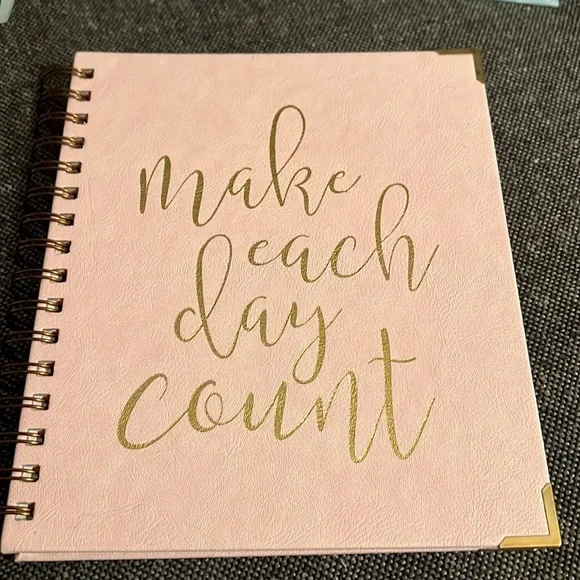 make
each
day
count